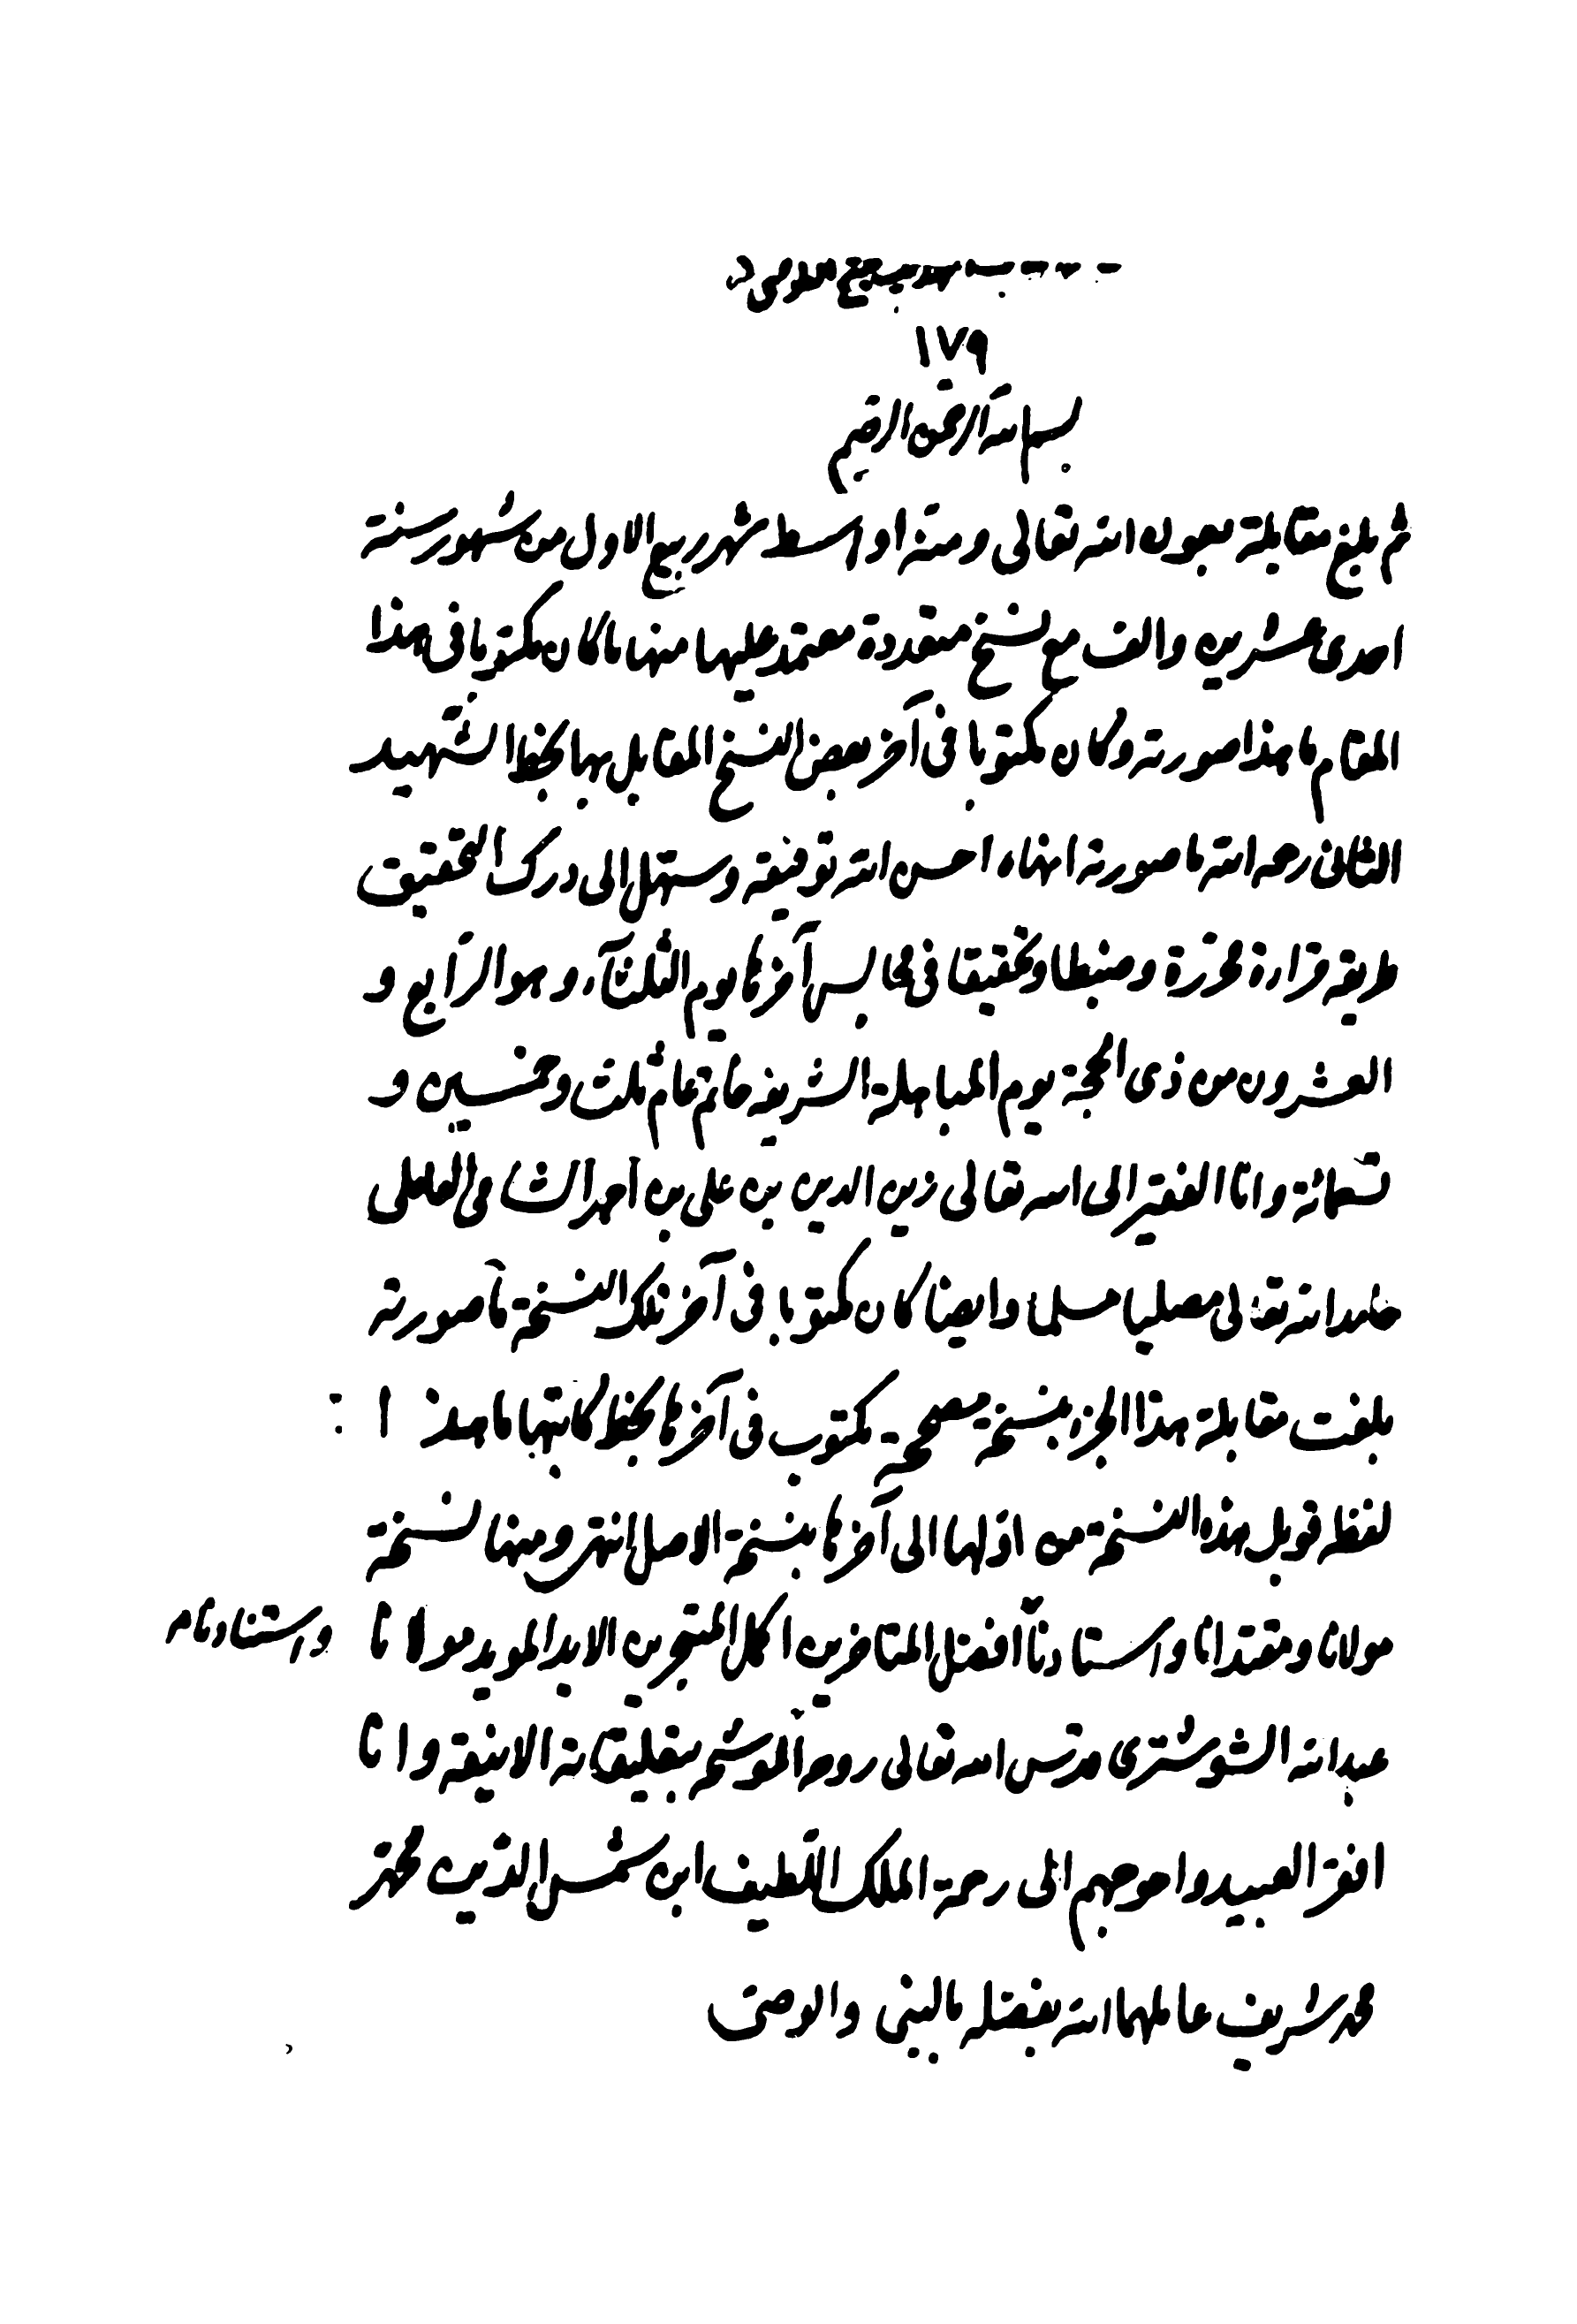 ١٧٩
بسم الله الرحمن الرحيم
ثم بلغ مقابلة بعون الله تعالى ومنه اواسط شهر ربيع الاول من شهور سنة
احدى عشرين والف مع نسخ متعددة معتمد عليها منها ما كان مكتوبا فى هذا
المقام ما هذا صورته وكان مكتوبا فى آخر بعض النسخ المقابل بها بخط الشهيد
الثانى رحمه الله ما صورته انهاه احسن الله توفيقه وسهل الى درك التحقيق
طريقه قراءة محررة وضبطا وتحقيقا فى مجالس آخرها يوم الثلثآء وهو الرابع و
العشرون من ذى الحجة يوم المباهلة الشريفه خاتم عام ثلث وخمسين و
تسعمائة وانا الفقير الى الله تعالى زين الدين بن على بن احمد الشامى العاملى
حامدا لله تعالى مصليا مسلما وايضا كان مكتوبا فى آخر تلك النسخة ما صورته
بلغت مقابلة هذا الجزء بنسخة مصححة مكتوب فى آخرها بخط كاتبها ما هذا :
لفظه قوبل هذه النسخة من اولها الى آخرها بنسخة الاصل انتهى ومنها نسخة
مولانا ومقتدانا واستادنا أفضل المتاخرين اكمل المتبحرين الابد المويد مولانا
واستنادنا
عبدالله الشوشترى قدس الله تعالى روحه الموشح بتعليقاته الانيقة وانا
افقر العبيد واحوجهم الى رحمة الملك اللطيف ابن شمس الدين محمد
محمد شريف عاملهما الله بفضله بالنبى والوصى